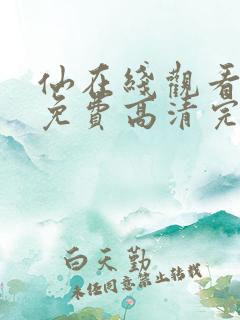 仙在綫觀看
免費高清完
白天勤
未经同意禁止转载